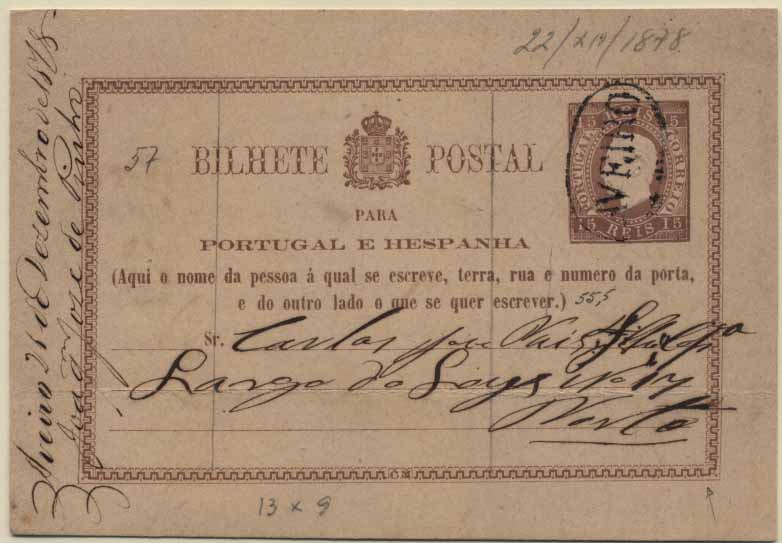 22/XII/1878
Aveiro 21 de Dezembro de 1878
João Jose de Pinho
57
BILHETE POSTAL
PARA
PORTUGAL E HESPANHA
(Aqui o nome da pessoa á qual se escreve, terra, rua e numero da porta,
e do outro lado o que se quer escrever.) 55,5
15 15
PORTUGAL CORREIO
15 REIS 15
AVEIRO
Sr. Carlos Jose
Largo do
Porto
13 x 9